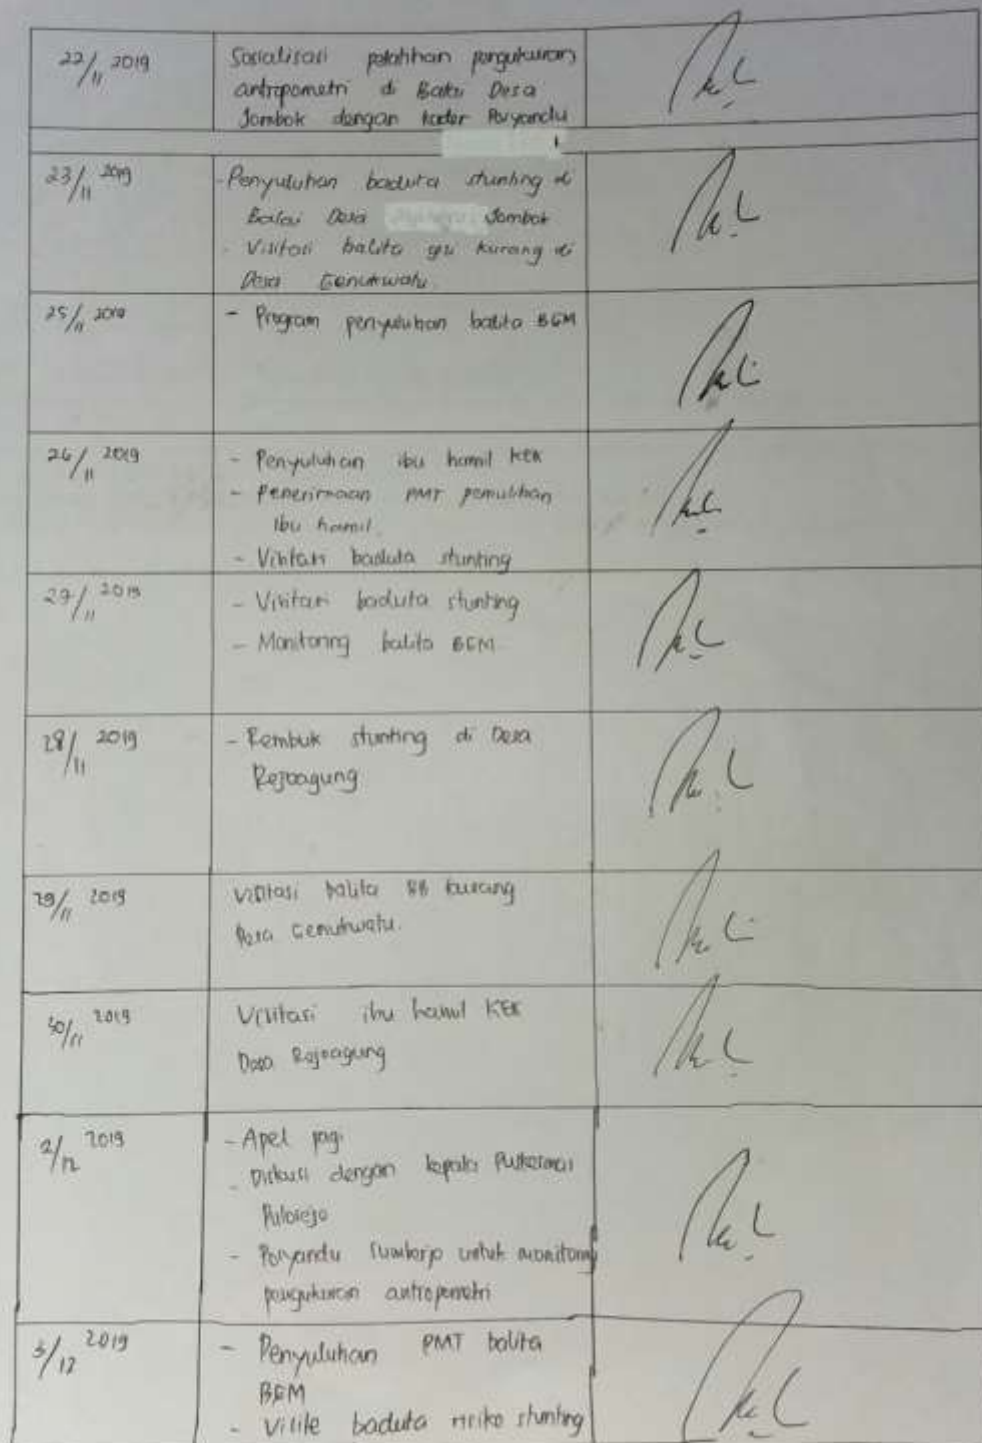 22/11 2019
Sosialisasi pelatihan pengukuran
antropometri di Balai Desa
Jombok dengan kader Posyandu
23/11 2019
- Penyuluhan baduta stunting di
Balai Desa Jombok
- Visitasi balita gizi kurang di
Desa Genukwatu.
25/11 2019
- Program penyuluhan balita BGM
26/11 2019
- Penyuluhan ibu hamil KEK
- Penerimaan PMT pemulihan
ibu hamil.
- Visitasi baduta stunting
27/11 2019
- Visitasi baduta stunting
- Monitoring balita BGM
28/11 2019
- Rembuk stunting di Desa
Rejoagung
29/11 2019
Visitasi balita BB kurang
Desa Genukwatu.
30/11 2019
Visitasi ibu hamil KEK
Desa Rejoagung
2/12 2019
- Apel pagi
- Diskusi dengan kepala Puskesmas
Pulorejo
- Posyandu Sumberjo untuk monitoring
pengukuran antropometri
3/12 2019
- Penyuluhan PMT balita
BGM
- Visite baduta risiko stunting